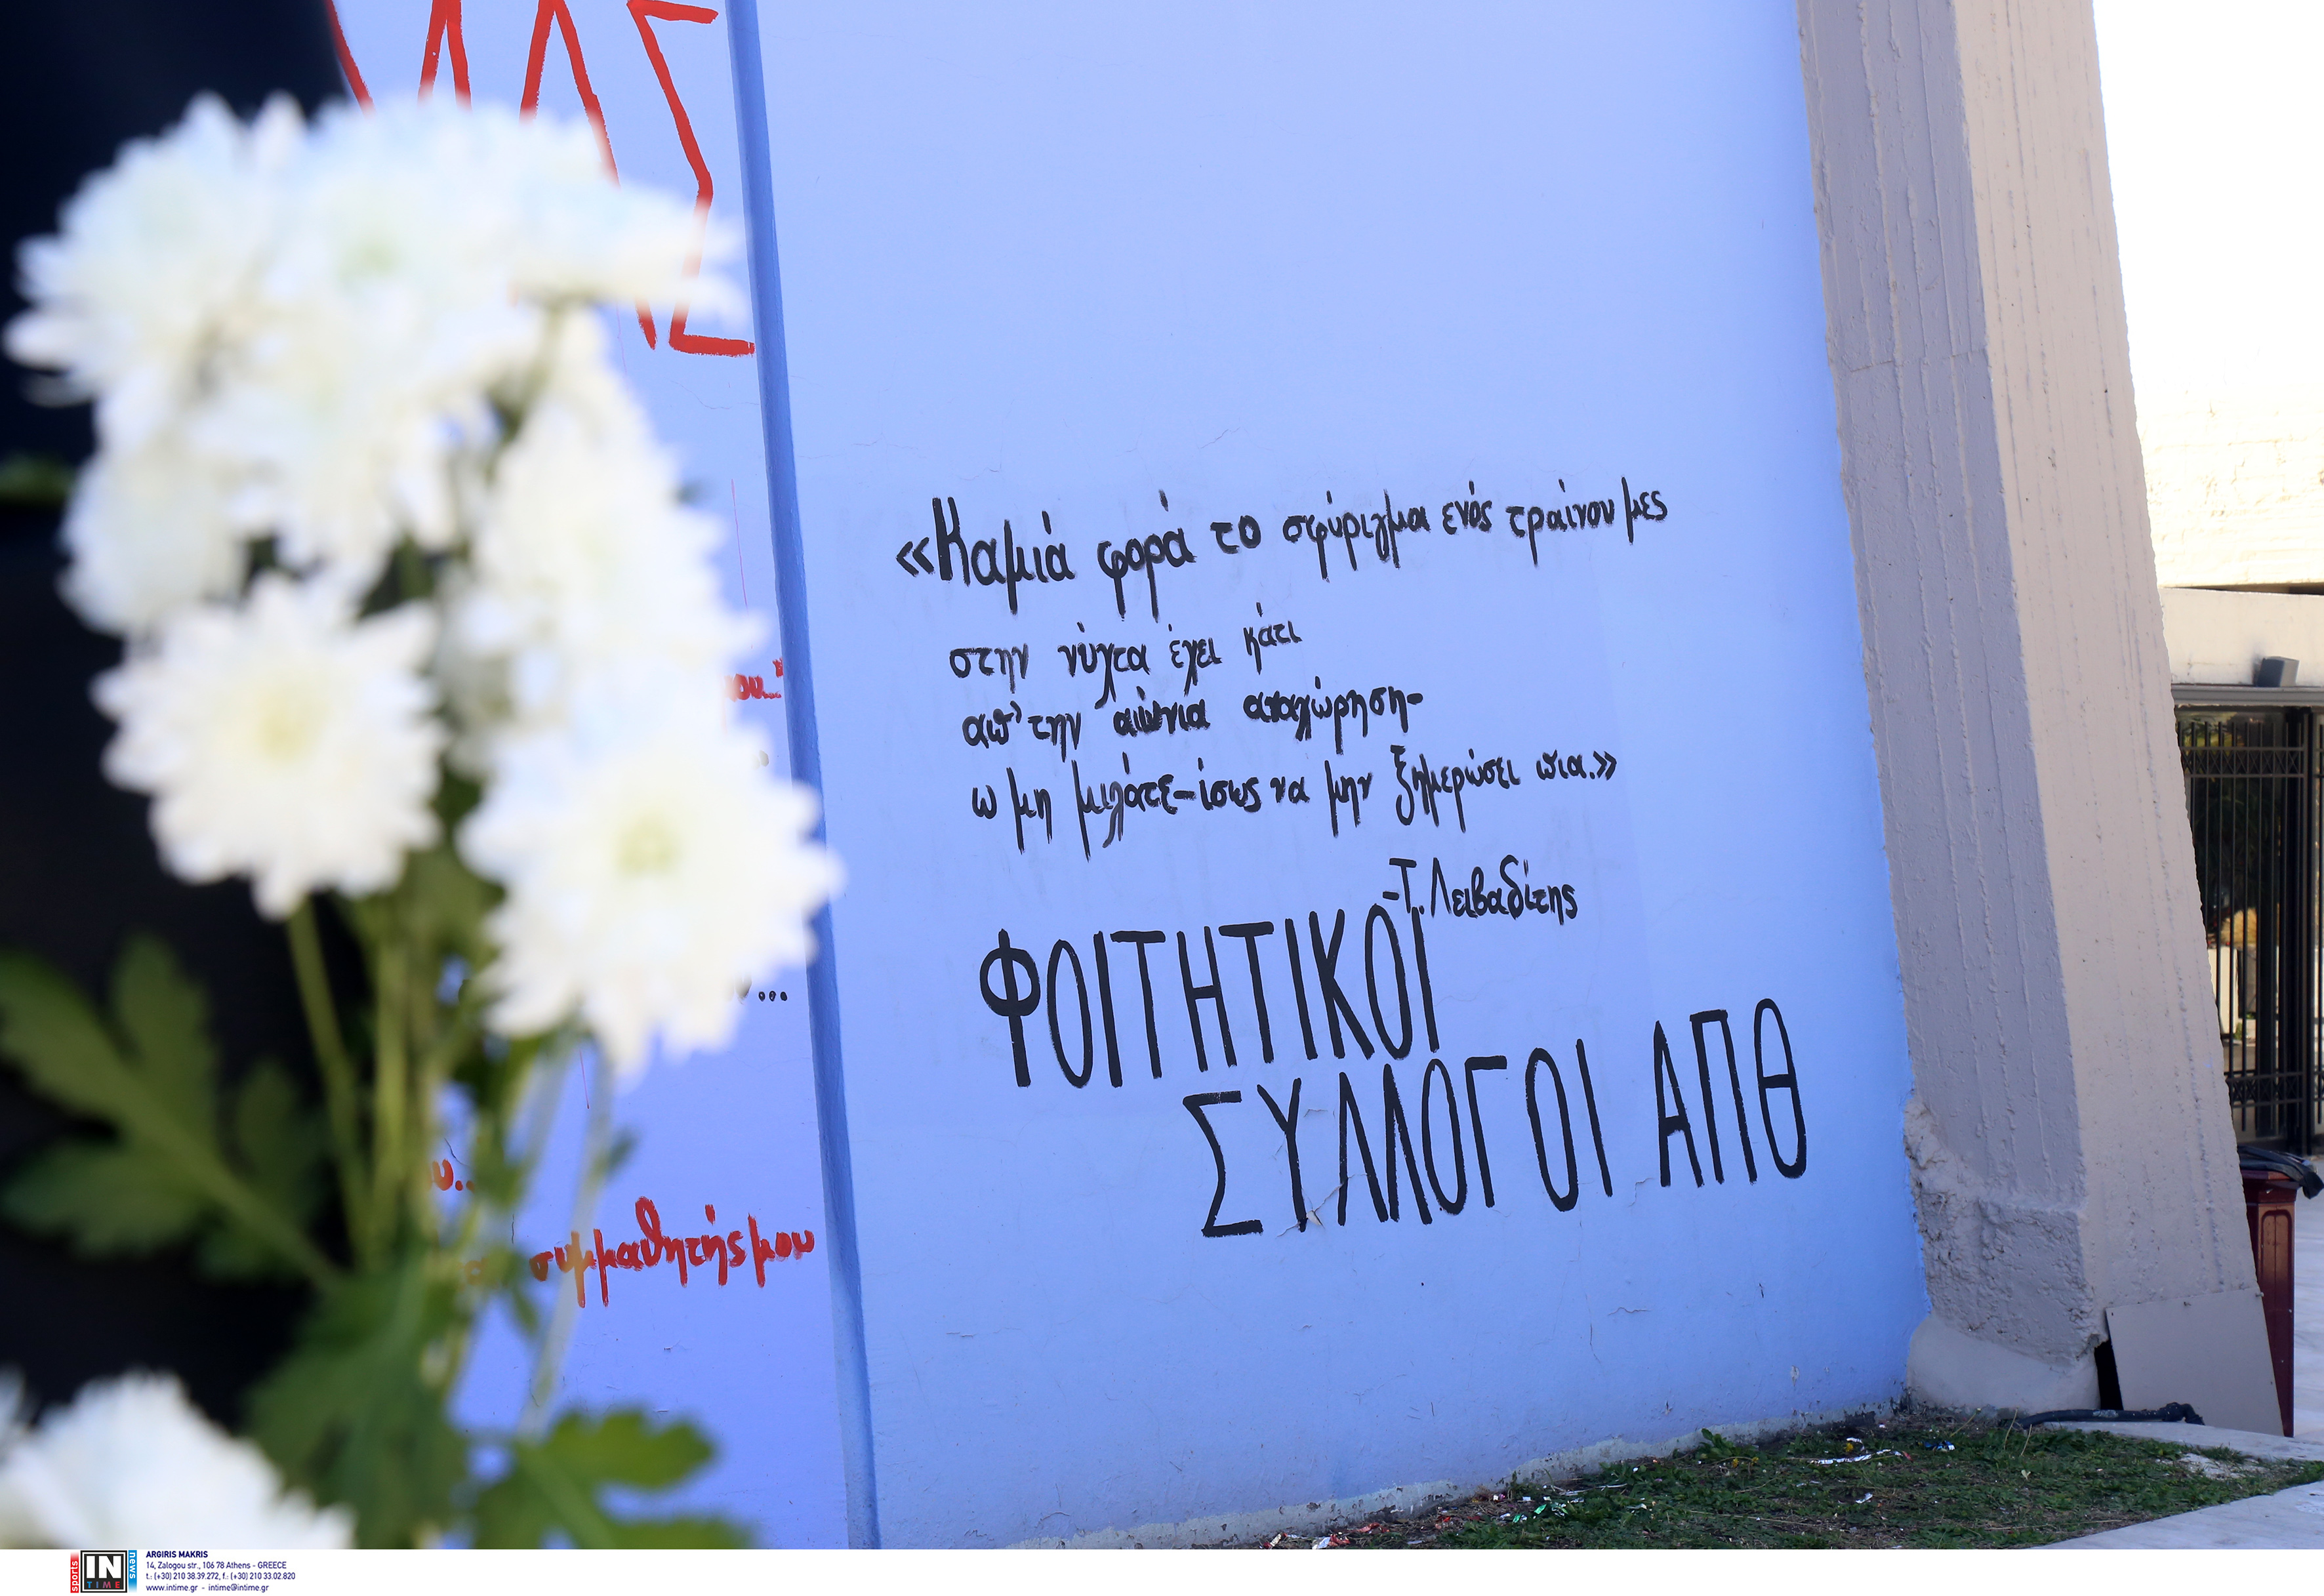 ΛΣ
«Καμιά φορά το σφύριγμα ενός τραίνου μες
στην νύχτα έχει κάτι
απ' την αιώνια αναχώρηση-
ω μη μιλάτε-ίσως να μην ξημερώσει πια.»
-Τ. Λειβαδίτης
ΦΟΙΤΗΤΙΚΟΙ
ΣΥΛΛΟΓΟΙ ΑΠΘ
ου..."
υ..
συμμαθητής μου
sports
IN
TIME
news
ARGIRIS MAKRIS
14, Zalogou str., 106 78 Athens - GREECE
t.: (+30) 210 38.39.272, f.: (+30) 210 33.02.820
www.intime.gr - intime@intime.gr